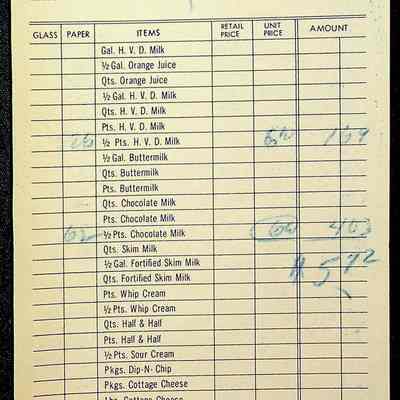 GLASS PAPER ITEMS RETAIL PRICE UNIT PRICE AMOUNT
Gal. H. V. D. Milk
½ Gal. Orange Juice
Qts. Orange Juice
½ Gal. H. V. D. Milk
Qts. H. V. D. Milk
Pts. H. V. D. Milk
26 ½ Pts. H. V. D. Milk 6½ 169
½ Gal. Buttermilk
Qts. Buttermilk
Pts. Buttermilk
Qts. Chocolate Milk
Pts. Chocolate Milk
62 ½ Pts. Chocolate Milk 6½ 403
Qts. Skim Milk
½ Gal. Fortified Skim Milk $572
Qts. Fortified Skim Milk
Pts. Whip Cream
½ Pts. Whip Cream
Qts. Half & Half
Pts. Half & Half
½ Pts. Sour Cream
Pkgs. Dip-N-Chip
Pkgs. Cottage Cheese
Lbs. Cottage Cheese